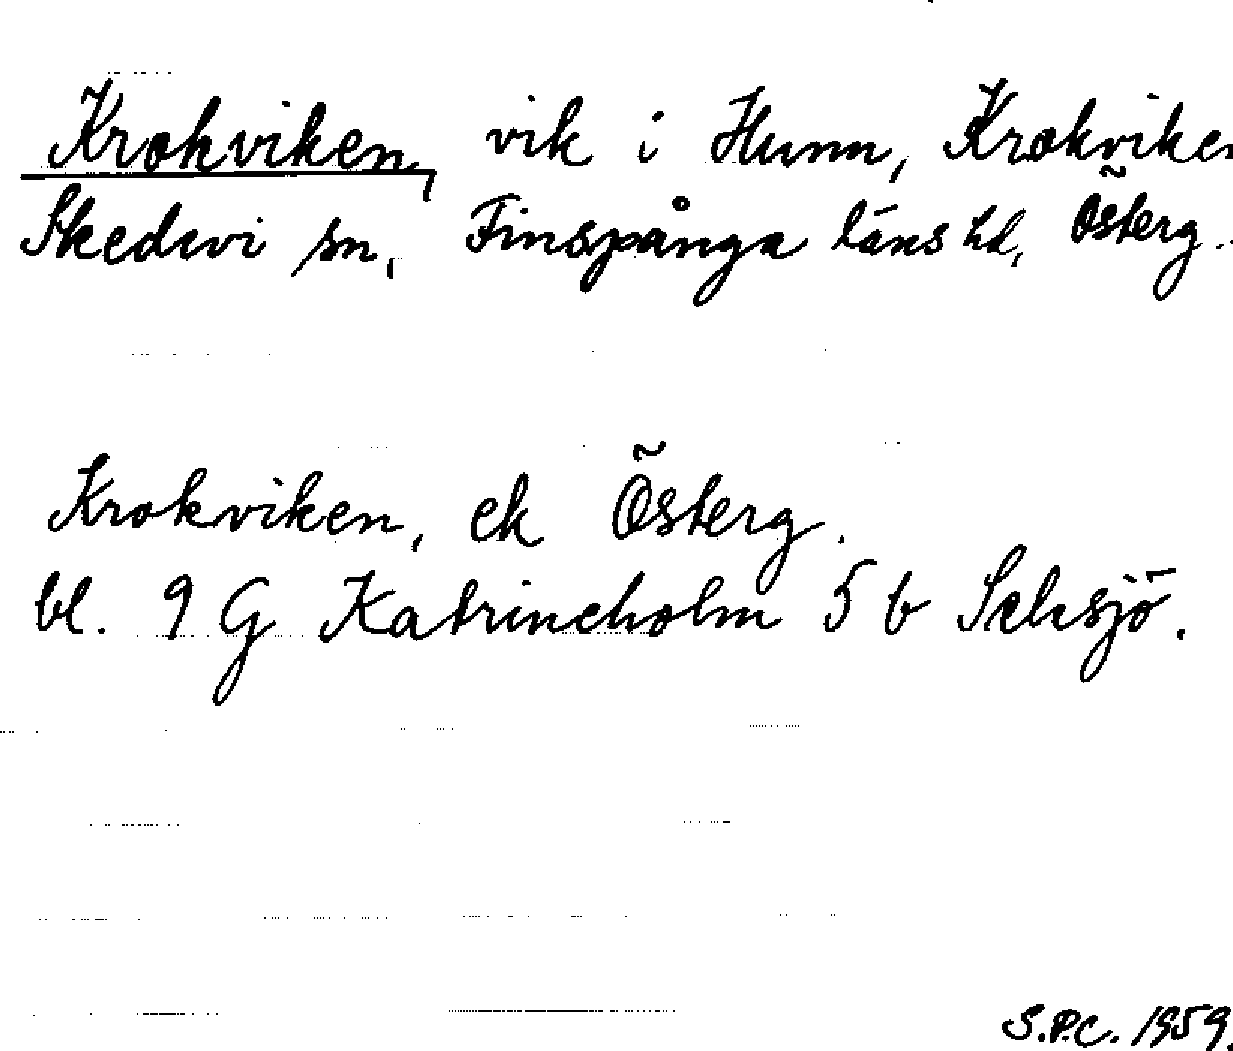 Krokviken, vik i Hunn, Krokviken
Skedevi sn, Finspånga läns hd, Österg.
Krokviken, ek Österg.
bl. 9 G Katrineholm 5 b
S.P.C. 1959.